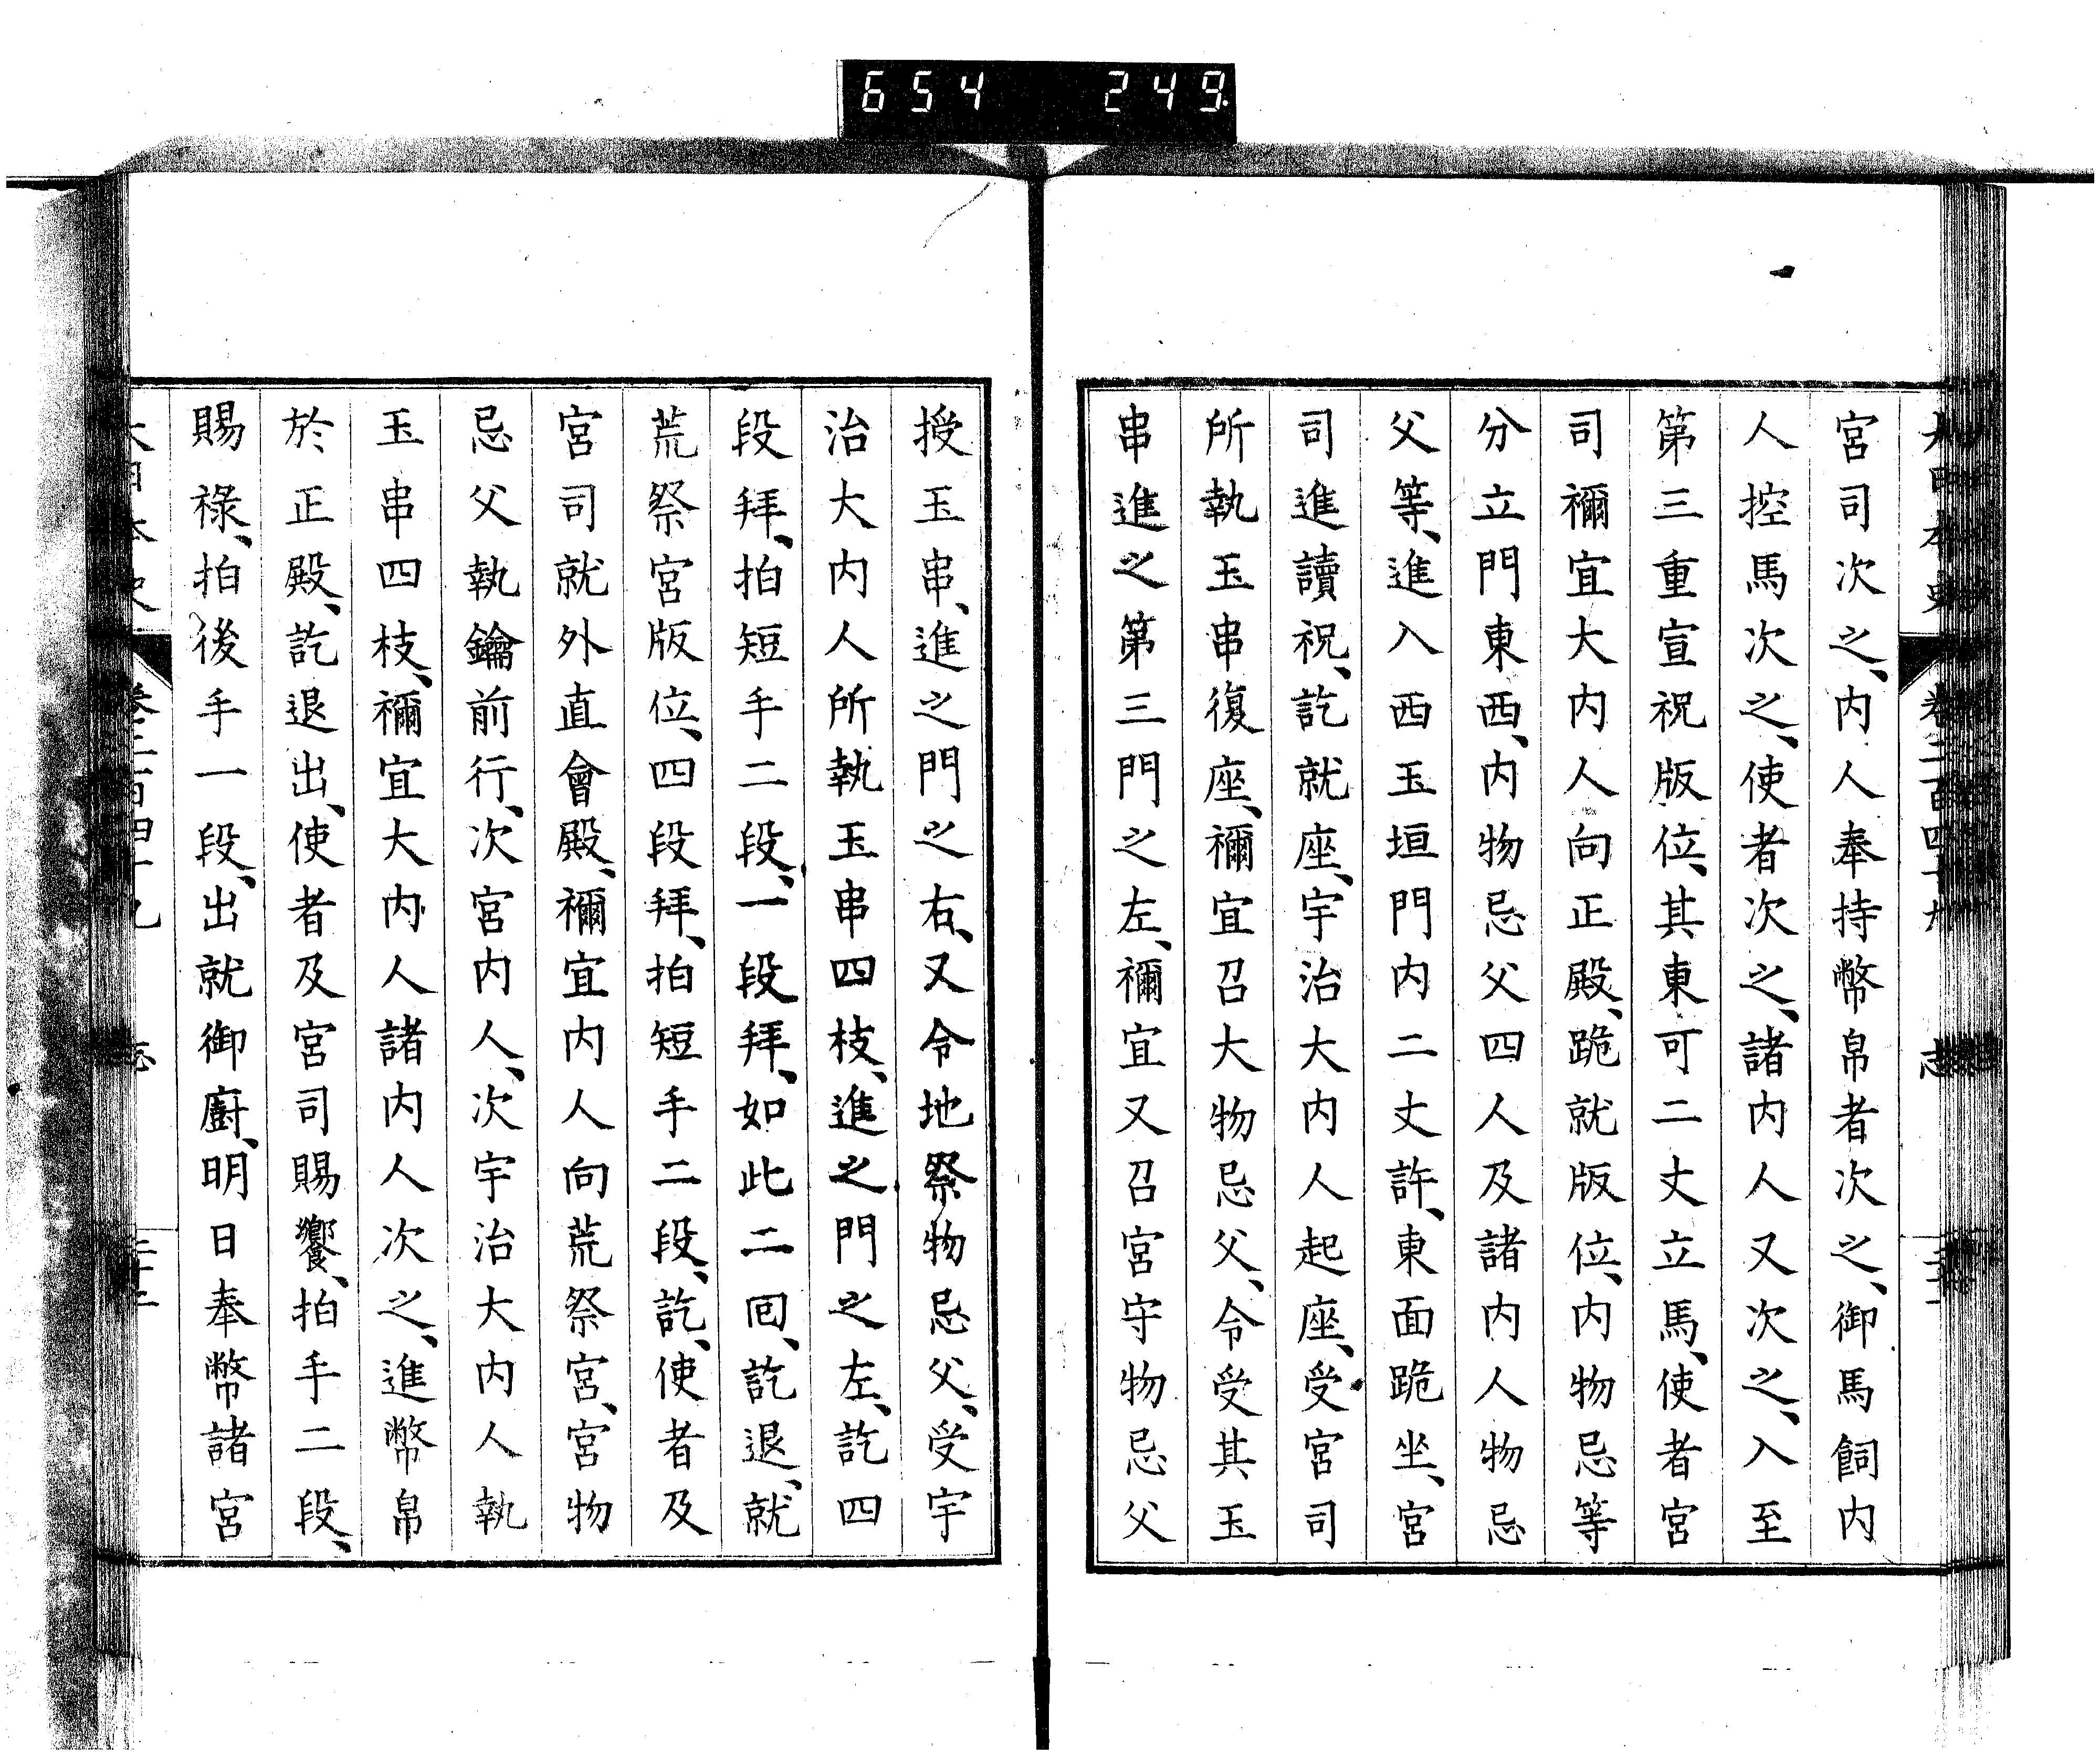 654 249
大日本史 卷二百四十九 志
宮司次之、内人奉持幣帛者次之、御馬飼内
人控馬次之、使者次之、諸内人又次之、入至
第三重宣祝版位、其東可二丈立馬、使者宮
司禰宜大内人向正殿、跪就版位、内物忌等
分立門東西、内物忌父四人及諸内人物忌
父等、進入西玉垣門内二丈許、東面跪坐、宮
司進讀祝、訖就座、宇治大内人起座、受宮司
所執玉串復座、禰宜召大物忌父、令受其玉
串進之第三門之左、禰宜又召宮守物忌父
授玉串、進之門之右、又令地祭物忌父、受宇
治大内人所執玉串四枝、進之門之左、訖四
段拜、拍短手二段、一段拜、如此二回、訖退、就
荒祭宮版位、四段拜、拍短手二段、訖、使者及
宮司就外直會殿、禰宜内人向荒祭宮、宮物
忌父執鑰前行、次宮内人、次宇治大内人執
玉串四枝、禰宜大内人諸内人次之、進幣帛
於正殿、訖退出、使者及宮司賜饗、拍手二段、
賜祿、拍後手一段、出就御廚、明日奉幣諸宮
大日本史 卷二百四十九 志